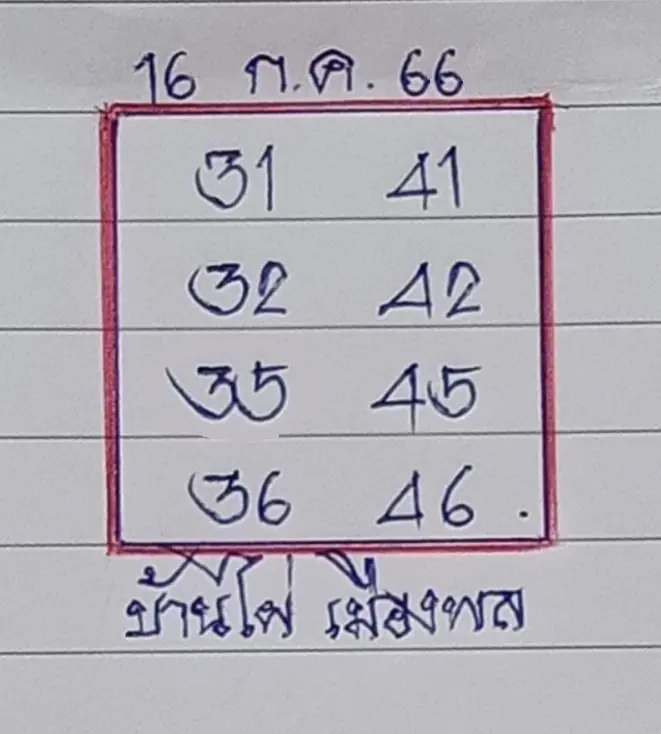 16 ก.ค. 66
31 41
32 42
35 45
36 46 .
บ้านไผ่ เมืองพล